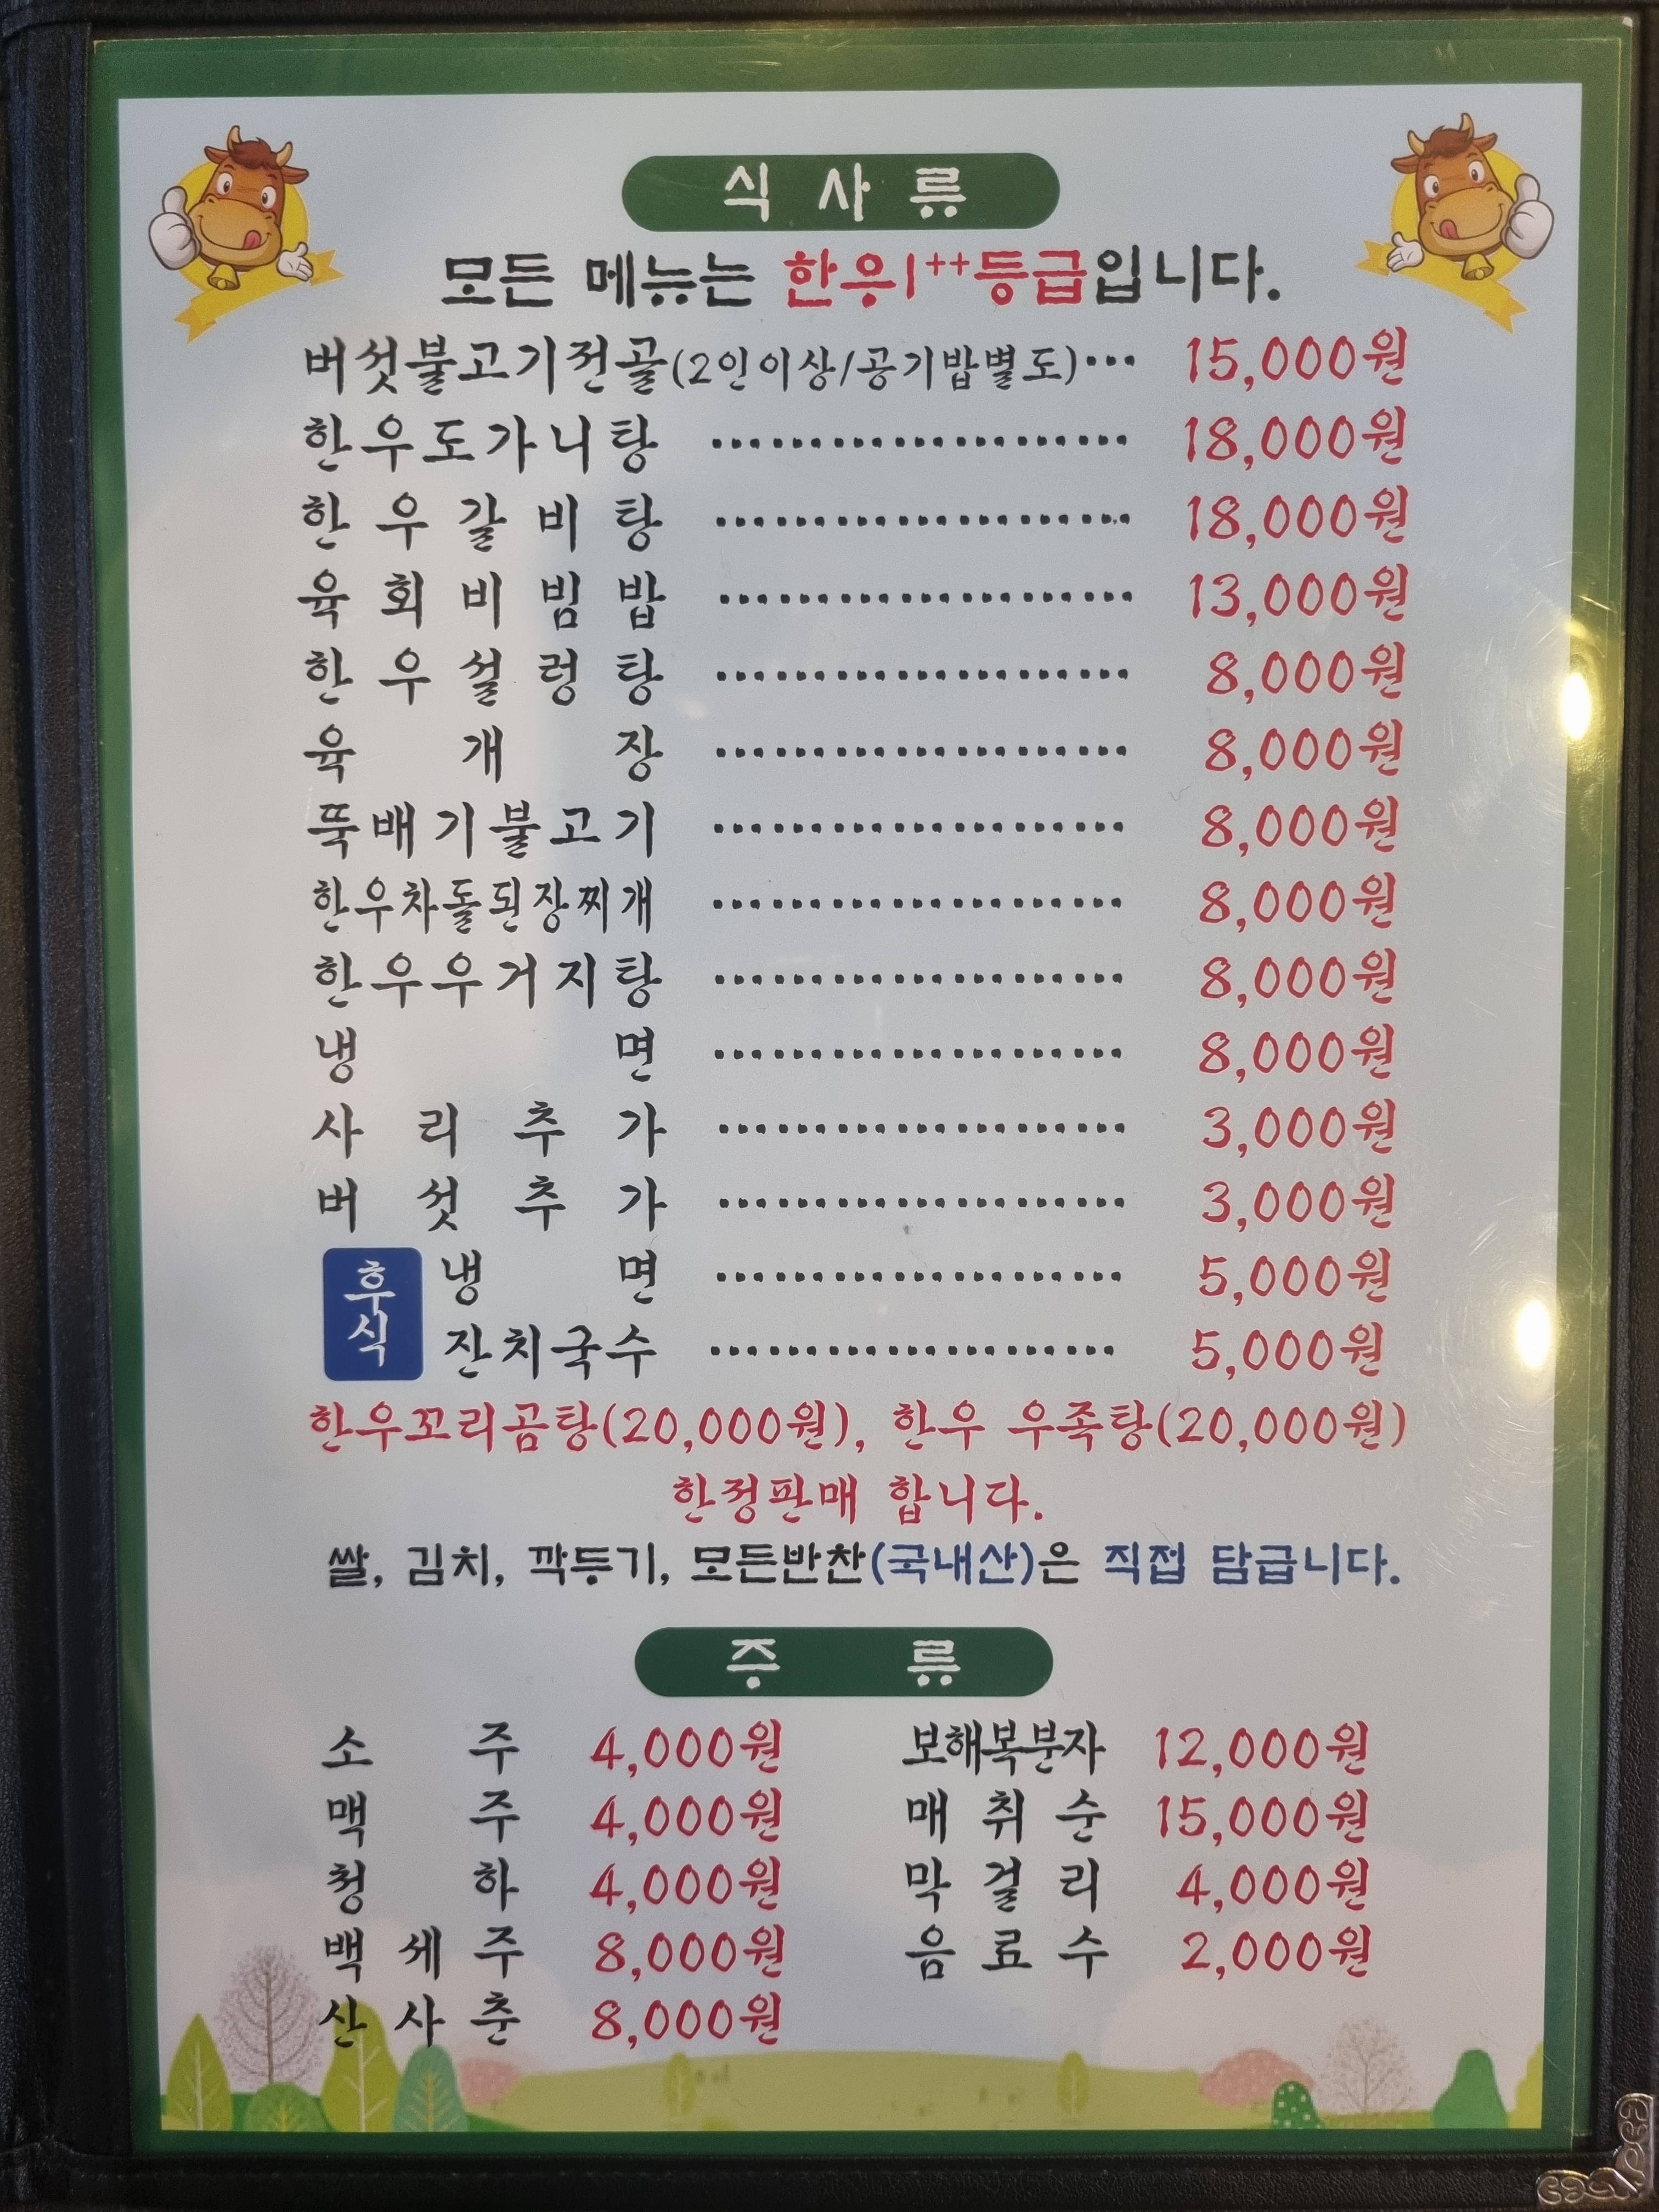 식사류
모든 메뉴는 한우1++등급입니다.
버섯불고기전골(2인이상/공기밥별도)··· 15,000원
한우도가니탕 ····················· 18,000원
한우갈비탕 ····················· 18,000원
육회비빔밥 ····················· 13,000원
한우설렁탕 ····················· 8,000원
육개장 ····················· 8,000원
뚝배기불고기 ····················· 8,000원
한우차돌된장찌개 ····················· 8,000원
한우우거지탕 ····················· 8,000원
냉면 ····················· 8,000원
사리추가 ····················· 3,000원
버섯추가 ····················· 3,000원
후식 냉면 ····················· 5,000원
잔치국수 ····················· 5,000원
한우꼬리곰탕(20,000원), 한우 우족탕(20,000원)
한정판매 합니다.
쌀, 김치, 깍두기, 모든반찬(국내산)은 직접 담급니다.
주류
소주 4,000원 보해복분자 12,000원
맥주 4,000원 매취순 15,000원
청하 4,000원 막걸리 4,000원
백세주 8,000원 음료수 2,000원
산사춘 8,000원